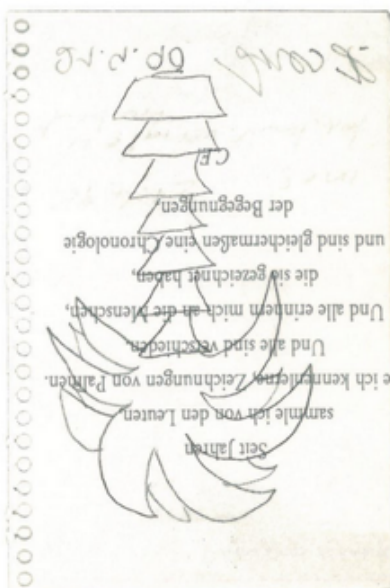 Seit Jahren
sammle ich von den Leuten,
ie ich kennenlerne, Zeichnungen von Palmen.
Und alle sind verschieden.
Und alle erinnern mich an die Menschen,
die sie gezeichnet haben,
und sind gleichermaßen eine Chronologie
der Begegnungen.
C.F.